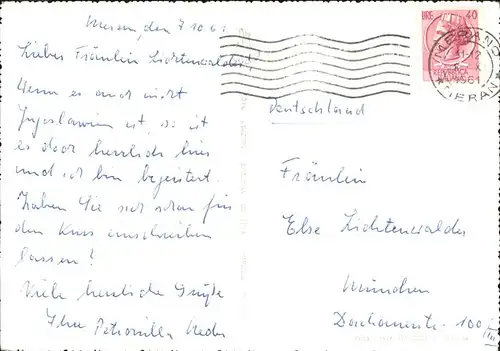 Meran, den 7.10.61
Liebes Fräulein Lichtenwalder!
Wenn es auch nicht
Jugoslawien ist, so ist
es doch herrlich hier
und ich bin begeistert.
Haben Sie sich schon für
den Kurs einschreiben
lassen!
Viele herzliche Grüße
Ihre Petronilla
LIRE 40
MERANO
1961
MERANO
Deutschland
Fräulein
Else Lichtenwalder
München
100